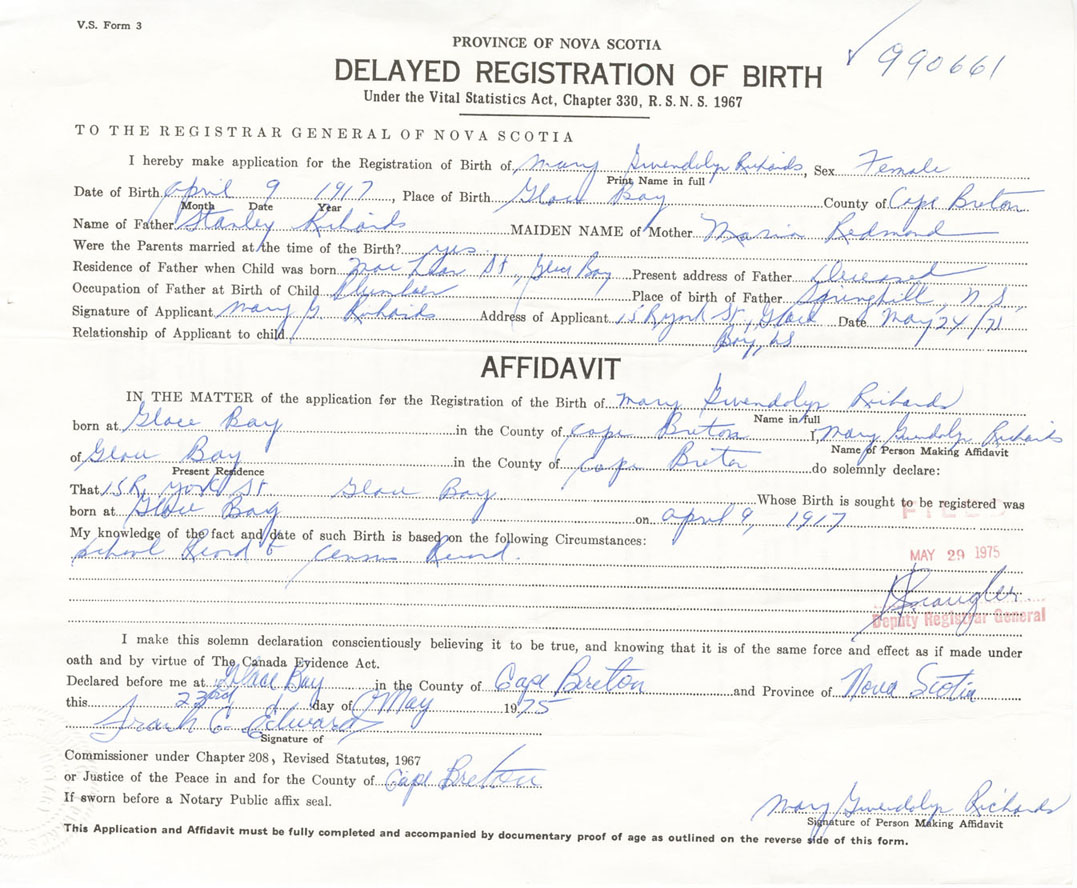 V.S. Form 3
990661
PROVINCE OF NOVA SCOTIA
DELAYED REGISTRATION OF BIRTH
Under the Vital Statistics Act, Chapter 330, R. S. N. S. 1967
TO THE REGISTRAR GENERAL OF NOVA SCOTIA
I hereby make application for the Registration of Birth of Mary Gwendolyn Richards, Sex Female
Print Name in full
Date of Birth April 9 1917, Place of Birth Glace Bay County of Cape Breton
Month Date Year
Name of Father Stanley Richards MAIDEN NAME of Mother Maria Redmond
Were the Parents married at the time of the Birth? yes
Residence of Father when Child was born St, Glace Bay Present address of Father Deceased
Occupation of Father at Birth of Child Plumber Place of birth of Father Springhill, N S,
Signature of Applicant Mary G Richards Address of Applicant 15R York St, Glace Date May 24/
Relationship of Applicant to child Bay, NS
AFFIDAVIT
IN THE MATTER of the application for the Registration of the Birth of Mary Gwendolyn Richards
Name in full
born at Glace Bay in the County of Cape Breton I, Mary Gwendolyn Richards
Name of Person Making Affidavit
of Glace Bay in the County of Cape Breton do solemnly declare:
Present Residence
That 15R York St Glace Bay Whose Birth is sought to be registered was
born at Glace Bay on April 9, 1917
FILED
My knowledge of the fact and date of such Birth is based on the following Circumstances:
School Record & Census Record.
MAY 29 1975
Deputy Registrar General
I make this solemn declaration conscientiously believing it to be true, and knowing that it is of the same force and effect as if made under
oath and by virtue of The Canada Evidence Act.
Declared before me at Glace Bay in the County of Cape Breton and Province of Nova Scotia
this 23rd day of May 1975
Frank C. Edwards
Signature of
Commissioner under Chapter 208, Revised Statutes, 1967
or Justice of the Peace in and for the County of Cape Breton
If sworn before a Notary Public affix seal.
Mary Gwendolyn Richards
Signature of Person Making Affidavit
This Application and Affidavit must be fully completed and accompanied by documentary proof of age as outlined on the reverse side of this form.